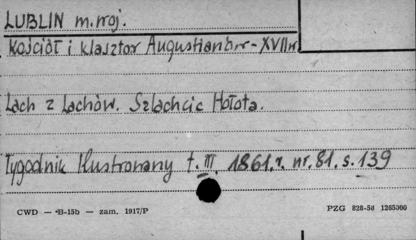 LUBLIN m. woj.
Kościół i klasztor Augustianów - XVII w
Lach z Lachów. Szlachcic Hołota.
Tygodnik Ilustrowany t. III 1861. r. nr. 81. s. 139
CWD — B-15b — zam. 1917/P
PZG 828-58 1265000